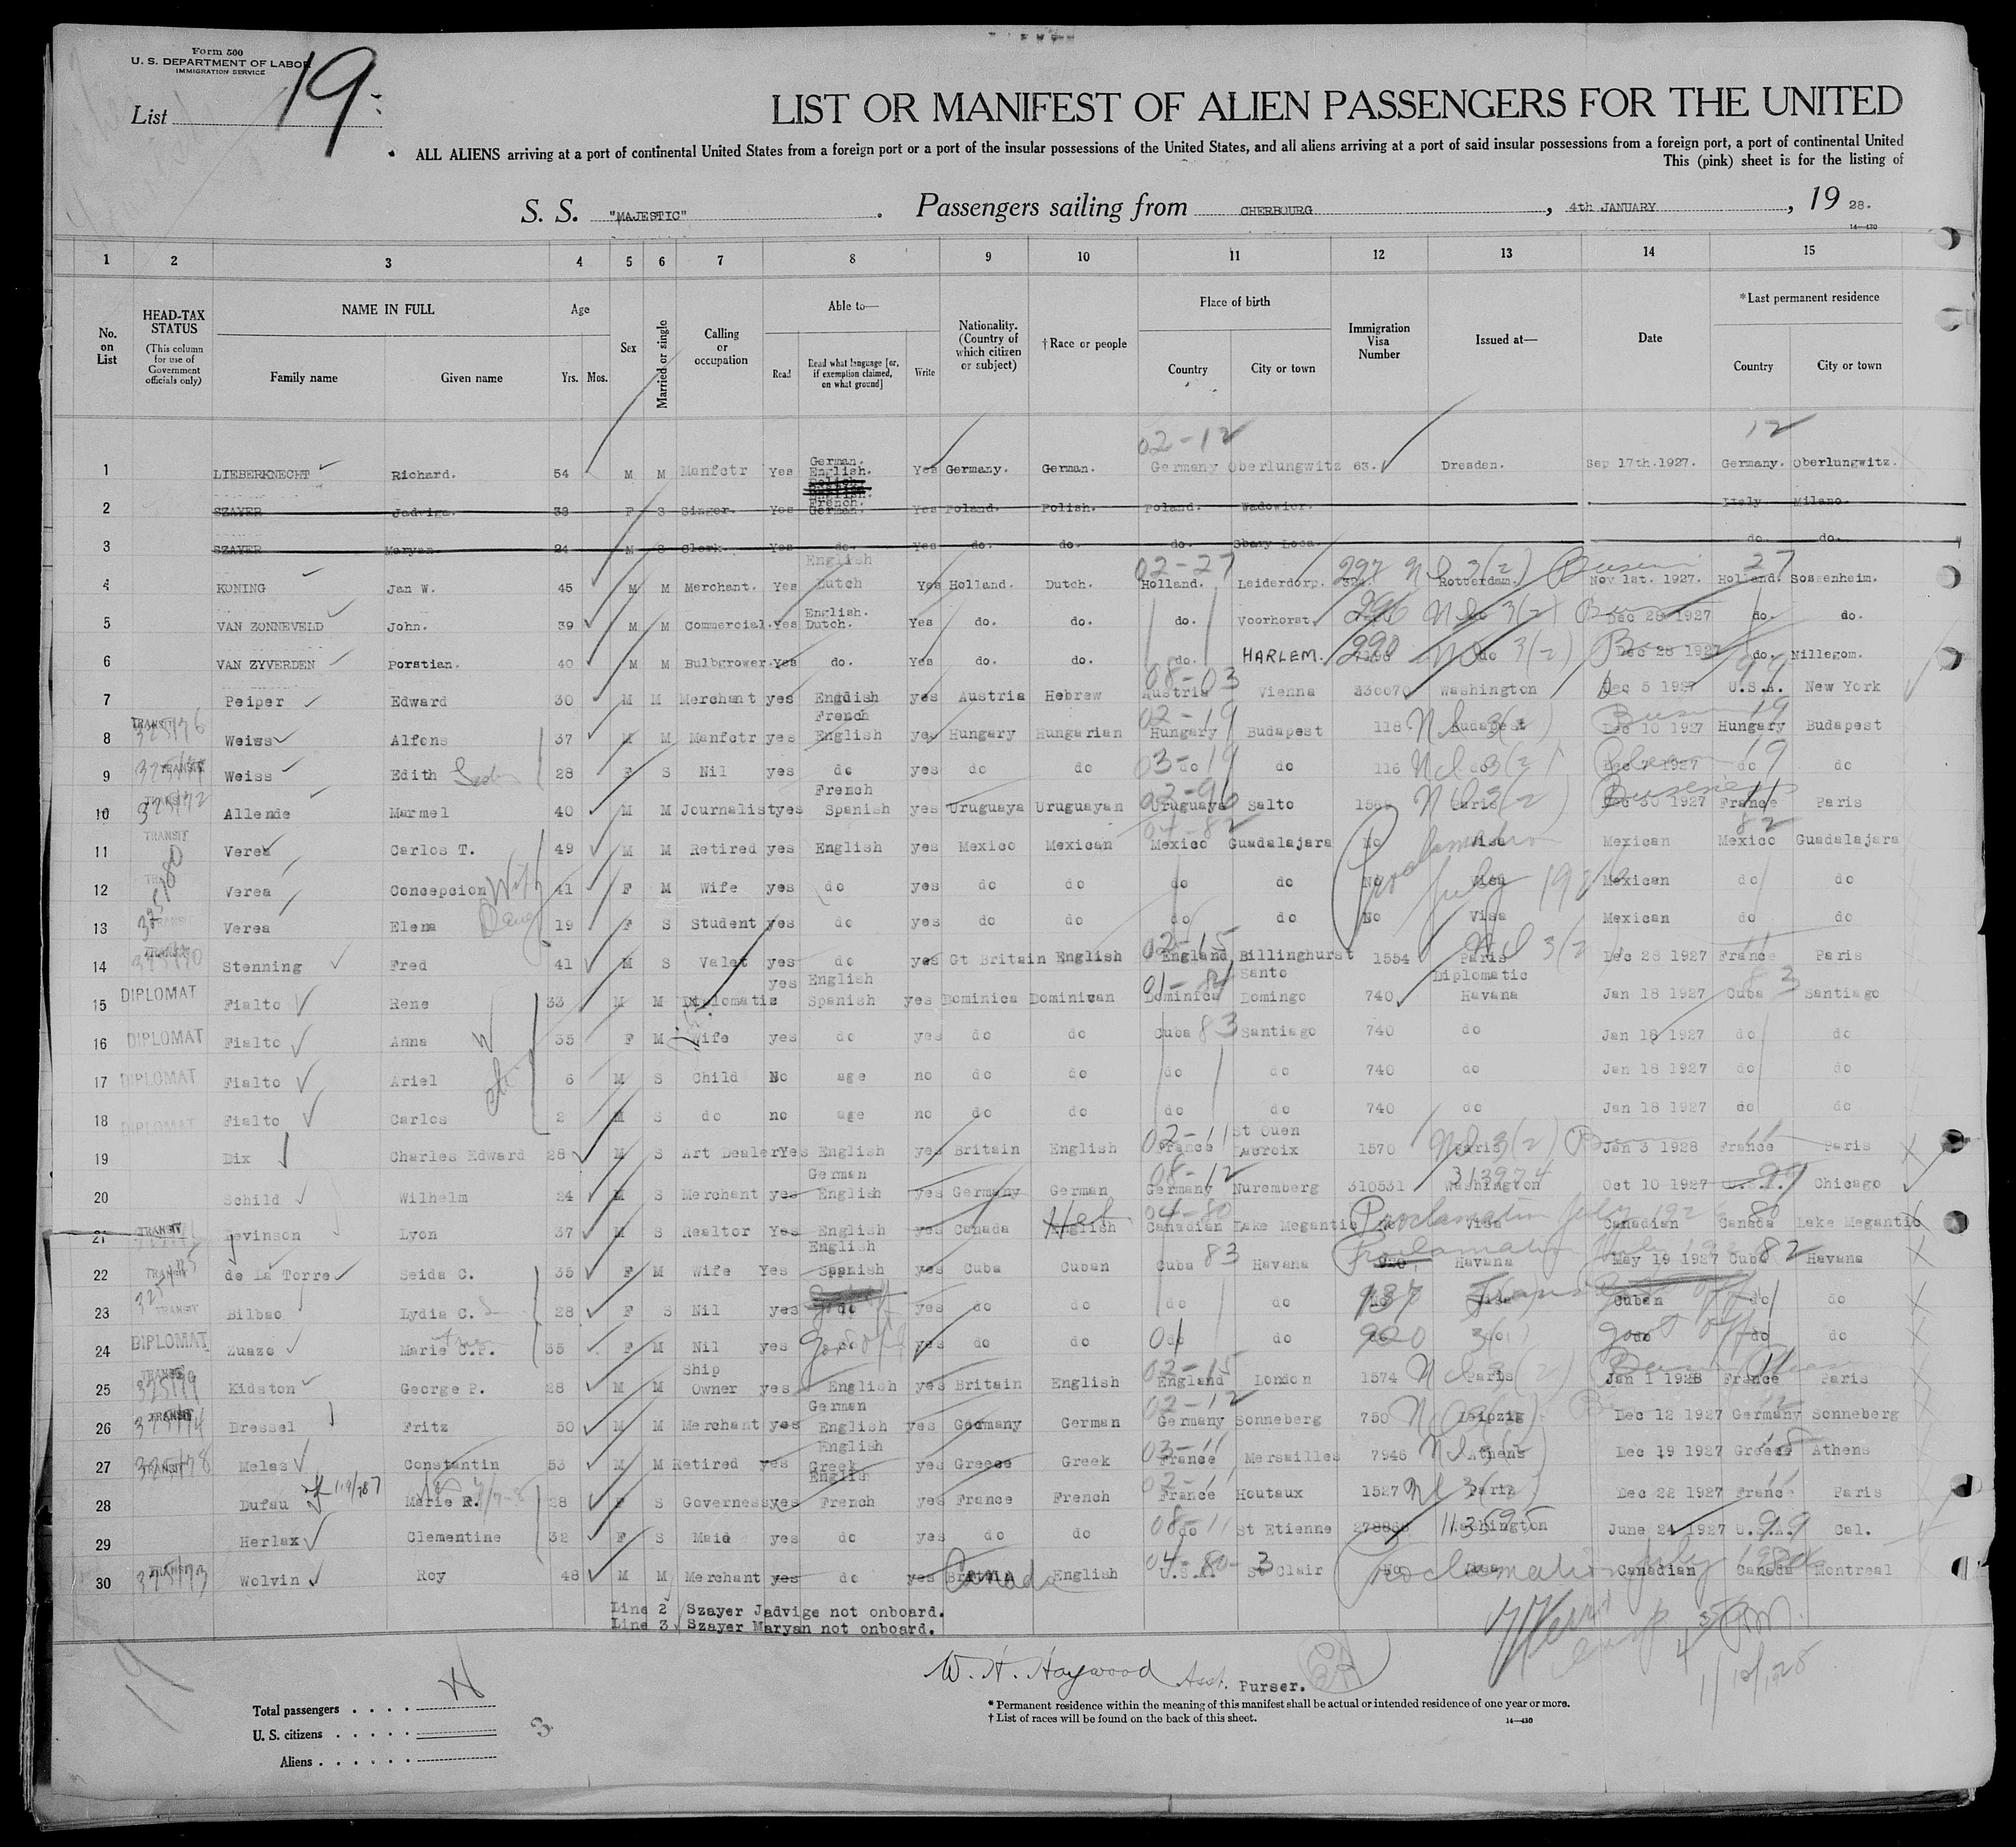 Form 500
U. S. DEPARTMENT OF LABOR
IMMIGRATION SERVICE
List 19
LIST OR MANIFEST OF ALIEN PASSENGERS FOR THE UNITED
ALL ALIENS arriving at a port of continental United States from a foreign port or a port of the insular possessions of the United States, and all aliens arriving at a port of said insular possessions from a foreign port, a port of continental United
This (pink) sheet is for the listing of
S. S. "MAJESTIC" . Passengers sailing from CHERBOURG, 4th JANUARY, 19 28.
14—430
1 2 3 4 5 6 7 8 9 10 11 12 13 14 15
No. on List
HEAD-TAX STATUS (This column for use of Government officials only)
NAME IN FULL Family name Given name
Age Yrs. Mos.
Sex
Married or single
Calling or occupation
Able to— Read Read what language [or, if exemption claimed, on what ground] Write
Nationality. (Country of which citizen or subject)
†Race or people
Place of birth Country City or town
Immigration Visa Number
Issued at—
Date
*Last permanent residence Country City or town
02-12 12
1 LIEBERKNECHT Richard. 54 M M Manfctr Yes German. English. Yes Germany. German. Germany Oberlungwitz 63. Dresden. Sep 17th.1927. Germany. Oberlungwitz.
2 SZAYER Jadviga. 38 F S Singer. Yes French. German. Yes Poland. Polish. Poland. Wadowier. Italy Milano.
3 SZAYER Maryan 24 M S Clerk. Yes do. Yes do. do. do. do. do.
02-27 297 27
4 KONING Jan W. 45 M M Merchant. Yes English Dutch Yes Holland. Dutch. Holland. Leiderdorp. 324. Rotterdam. Nov 1st. 1927. Holland. Sossenheim.
5 VAN ZONNEVELD John. 39 M M Commercial. Yes English. Dutch. Yes do. do. do. Voorhorst. 296 3(2) Dec 28 1927 do. do.
6 VAN ZYVERDEN Porstian. 40 M M Bulbgrower. Yes do. Yes do. do. do. HARLEM. 290 do 3(2) Dec 28 1927 do. Nillegom.
08-03 99
7 Peiper Edward 30 M M Merchant yes English yes Austria Hebrew Austria Vienna 330070 Washington Dec 5 1927 U.S.A. New York
02-19 19
8 TRANSIT Weiss Alfons 37 M M Manfctr yes French English yes Hungary Hungarian Hungary Budapest 118 Budapest Dec 10 1927 Hungary Budapest
9 TRANSIT Weiss Edith 28 F S Nil yes do yes do do 03-19 do do 116 do 3(2) Dec 7 1927 do 19 do
10 TRANSIT Allende Marmel 40 M M Journalist yes French Spanish yes Uruguaya Uruguayan Uruguaya Salto Paris Dec 30 1927 France Paris
04-82 82
11 TRANSIT Verea Carlos T. 49 M M Retired yes English yes Mexico Mexican Mexico Guadalajara No Visa Mexican Mexico Guadalajara
Proclamation July 1926
12 Verea Concepcion Wife 41 F M Wife yes do yes do do do do No Visa Mexican do do
13 TRANSIT Verea Elena Daug 19 F S Student yes do yes do do do do No Visa Mexican do do
02-15 11
14 TRANSIT Stenning Fred 41 M S Valet yes do yes Gt Britain English England Billinghurst 1554 Paris 3(2) Dec 28 1927 France Paris
01-84 83
15 DIPLOMAT Fialto Rene 33 M M Diplomatic yes English Spanish yes Dominica Dominican Dominica Santo Domingo 740 Diplomatic Havana Jan 18 1927 Cuba Santiago
16 DIPLOMAT Fialto Anna W 35 F M Wife yes do yes do do Cuba 83 Santiago 740 do Jan 18 1927 do do
17 DIPLOMAT Fialto Ariel 6 M S Child No age no do do do do 740 do Jan 18 1927 do do
18 DIPLOMAT Fialto Carlos 2 M S do no age no do do do do 740 do Jan 18 1927 do do
02-11 11
19 Dix Charles Edward 28 M S Art Dealer Yes English yes Britain English France St Ouen Lacroix 1570 Paris 3(2) Jan 3 1928 France Paris
08-12 313974 99
20 Schild Wilhelm 24 M S Merchant yes German English yes Germany German Germany Nuremberg 310531 Washington Oct 10 1927 U.S.A. Chicago
04-80 80
21 TRANSIT Levinson Lyon 37 M S Realtor Yes English yes Canada English Heb Canadian Lake Megantic No Visa Proclamation July 1926 Canadian Canada Lake Megantic
22 TRANSIT de La Torre Seida C. 35 F M Wife Yes English Spanish yes Cuba Cuban Cuba 83 Havana 920 Havana Proclamation May 19 1927 Cuba 82 Havana
23 TRANSIT Bilbao Lydia C. 28 F S Nil yes do yes do do do do 137 Visa Cuban do do
24 DIPLOMAT Zuazo Marie C.P. 35 F M Nil yes yes do do do do 920 3(1) do do
02-15 11
25 TRANSIT Kidston George P. 28 M M Ship Owner yes English yes Britain English England London 1574 Paris (2) Jan 1 1928 France Paris
02-12 12
26 TRANSIT Dressel Fritz 50 M M Merchant yes German English yes Germany German Germany Sonneberg 750 Leipzig Dec 12 1927 Germany Sonneberg
03-11 18
27 TRANSIT Melas Constantin 53 M M Retired yes English Greek yes Greece Greek France Merseilles 7946 Athens Dec 19 1927 Greece Athens
02-11 11
28 Dufau Marie R. 28 F S Governess yes English French yes France French France Houtaux 1527 Paris Dec 22 1927 France Paris
29 Herlax Clementine 32 F S Maid yes do yes do do 08-11 do St Etienne 278868 Washington 113595 June 24 1927 U.S.A. 99 Cal.
30 TRANSIT Wolvin Roy 48 M M Merchant yes do yes Britain Canada English 04-80-3 U.S.A. St Clair No Visa Proclamation July 1926 Canadian Canada Montreal
Line 2 Szayer Jadvige not onboard.
Line 3 Szayer Maryan not onboard.
19
W. H. Haywood Asst. Purser.
1/10/28
Total passengers . . . .
U. S. citizens . . . . .
Aliens . . . . . .
3
* Permanent residence within the meaning of this manifest shall be actual or intended residence of one year or more.
† List of races will be found on the back of this sheet.
14—430